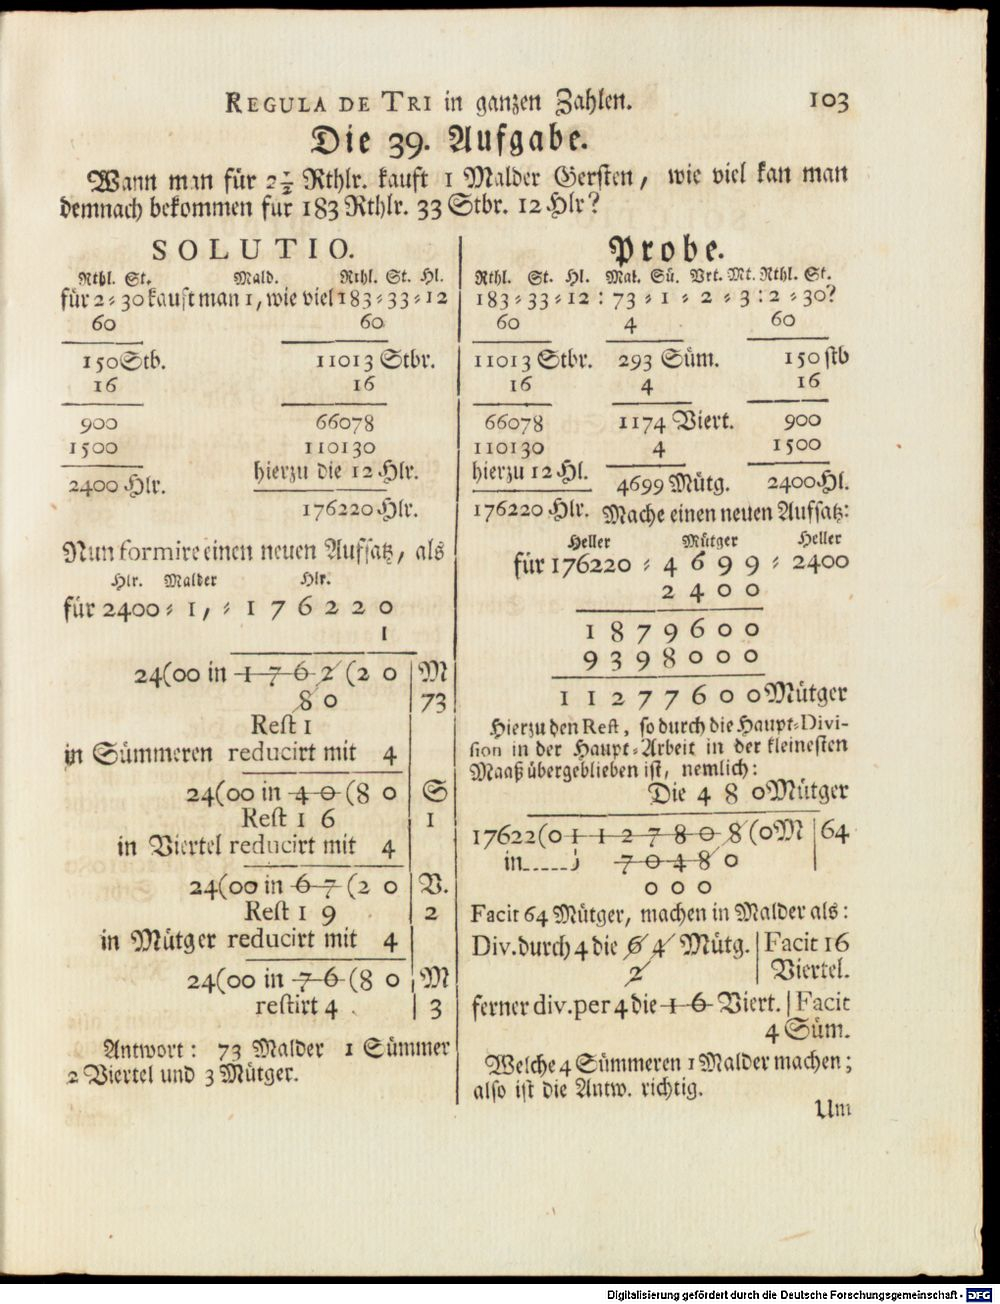 REGULA DE TRI in ganzen Zahlen. 103
Die 39. Aufgabe.
Wann man für 2½ Rthlr. kauft 1 Malder Gersten, wie viel kan man
demnach bekommen für 183 Rthlr. 33 Stbr. 12 Hlr?
SOLUTIO.
Rthl. St. Mald. Rthl. St. Hl.
für 2 = 30 kauft man 1, wie viel 183 = 33 = 12
60 60
150 Stb. 11013 Stbr.
16 16
900 66078
1500 110130
hierzu die 12 Hlr.
2400 Hlr.
176220 Hlr.
Nun formire einen neuen Aufsatz, als
Hlr. Malder Hlr.
für 2400 = 1, = 1 7 6 2 2 0
1
24(00 in 1 7 6 2 (2 0 M
8 0 73
Rest 1
in Sümmeren reducirt mit 4
24(00 in 4 0 (8 0 S
Rest 1 6 1
in Viertel reducirt mit 4
24(00 in 6 7 (2 0 V.
Rest 1 9 2
in Mütger reducirt mit 4
24(00 in 7 6 (8 0 M
restirt 4 3
Antwort: 73 Malder 1 Sümmer
2 Viertel und 3 Mütger.
Probe.
Rthl. St. Hl. Mat. Sü. Vrt. Mt. Rthl. St.
183 = 33 = 12 : 73 = 1 = 2 = 3 : 2 = 30?
60 4 60
11013 Stbr. 293 Süm. 150 stb
16 4 16
66078 1174 Viert. 900
110130 4 1500
hierzu 12 Hl.
4699 Mütg. 2400 Hl.
176220 Hlr. Mache einen neuen Aufsatz:
Heller Mütger Heller
für 176220 = 4 6 9 9 = 2400
2 4 0 0
1 8 7 9 6 0 0
9 3 9 8 0 0 0
1 1 2 7 7 6 0 0 Mütger
Hierzu den Rest, so durch die Haupt=Divi-
sion in der Haupt=Arbeit in der kleinesten
Maaß übergeblieben ist, nemlich:
Die 4 8 0 Mütger
17622(0 1 1 2 7 8 0 8 (0 M 64
in.....j 7 0 4 8 0
0 0 0
Facit 64 Mütger, machen in Malder als:
Div. durch 4 die 6 4 Mütg. Facit 16
2 Viertel.
ferner div. per 4 die 1 6 Viert. Facit
4 Süm.
Welche 4 Sümmeren 1 Malder machen;
also ist die Antw. richtig.
Um
Digitalisierung gefördert durch die Deutsche Forschungsgemeinschaft - DFG